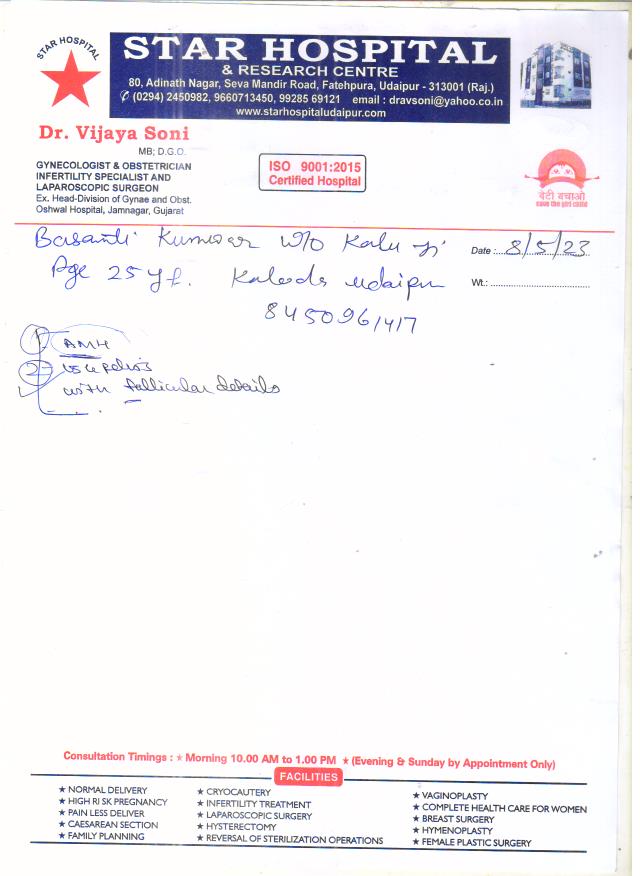 STAR HOSPITAL
STAR HOSPITAL
& RESEARCH CENTRE
80, Adinath Nagar, Seva Mandir Road, Fatehpura, Udaipur - 313001 (Raj.)
(0294) 2450982, 9660713450, 99285 69121 email : dravsoni@yahoo.co.in
www.starhospitaludaipur.com
Dr. Vijaya Soni
MB; D.G.O.
GYNECOLOGIST & OBSTETRICIAN
INFERTILITY SPECIALIST AND
LAPAROSCOPIC SURGEON
Ex. Head-Division of Gynae and Obst.
Oshwal Hospital, Jamnagar, Gujarat
ISO 9001:2015
Certified Hospital
बेटी बचाओ
save the girl child
Basanti Kunwar W/o Kalu ji
Date : 8/5/23
Age 25 yf. Udaipur
Wt.:
8450961417
1 AMH
2 US pelvis
with follicular details
Consultation Timings : ★ Morning 10.00 AM to 1.00 PM ★ (Evening & Sunday by Appointment Only)
FACILITIES
★ NORMAL DELIVERY
★ HIGH RI SK PREGNANCY
★ PAIN LESS DELIVER
★ CAESAREAN SECTION
★ FAMILY PLANNING
★ CRYOCAUTERY
★ INFERTILITY TREATMENT
★ LAPAROSCOPIC SURGERY
★ HYSTERECTOMY
★ REVERSAL OF STERILIZATION OPERATIONS
★ VAGINOPLASTY
★ COMPLETE HEALTH CARE FOR WOMEN
★ BREAST SURGERY
★ HYMENOPLASTY
★ FEMALE PLASTIC SURGERY